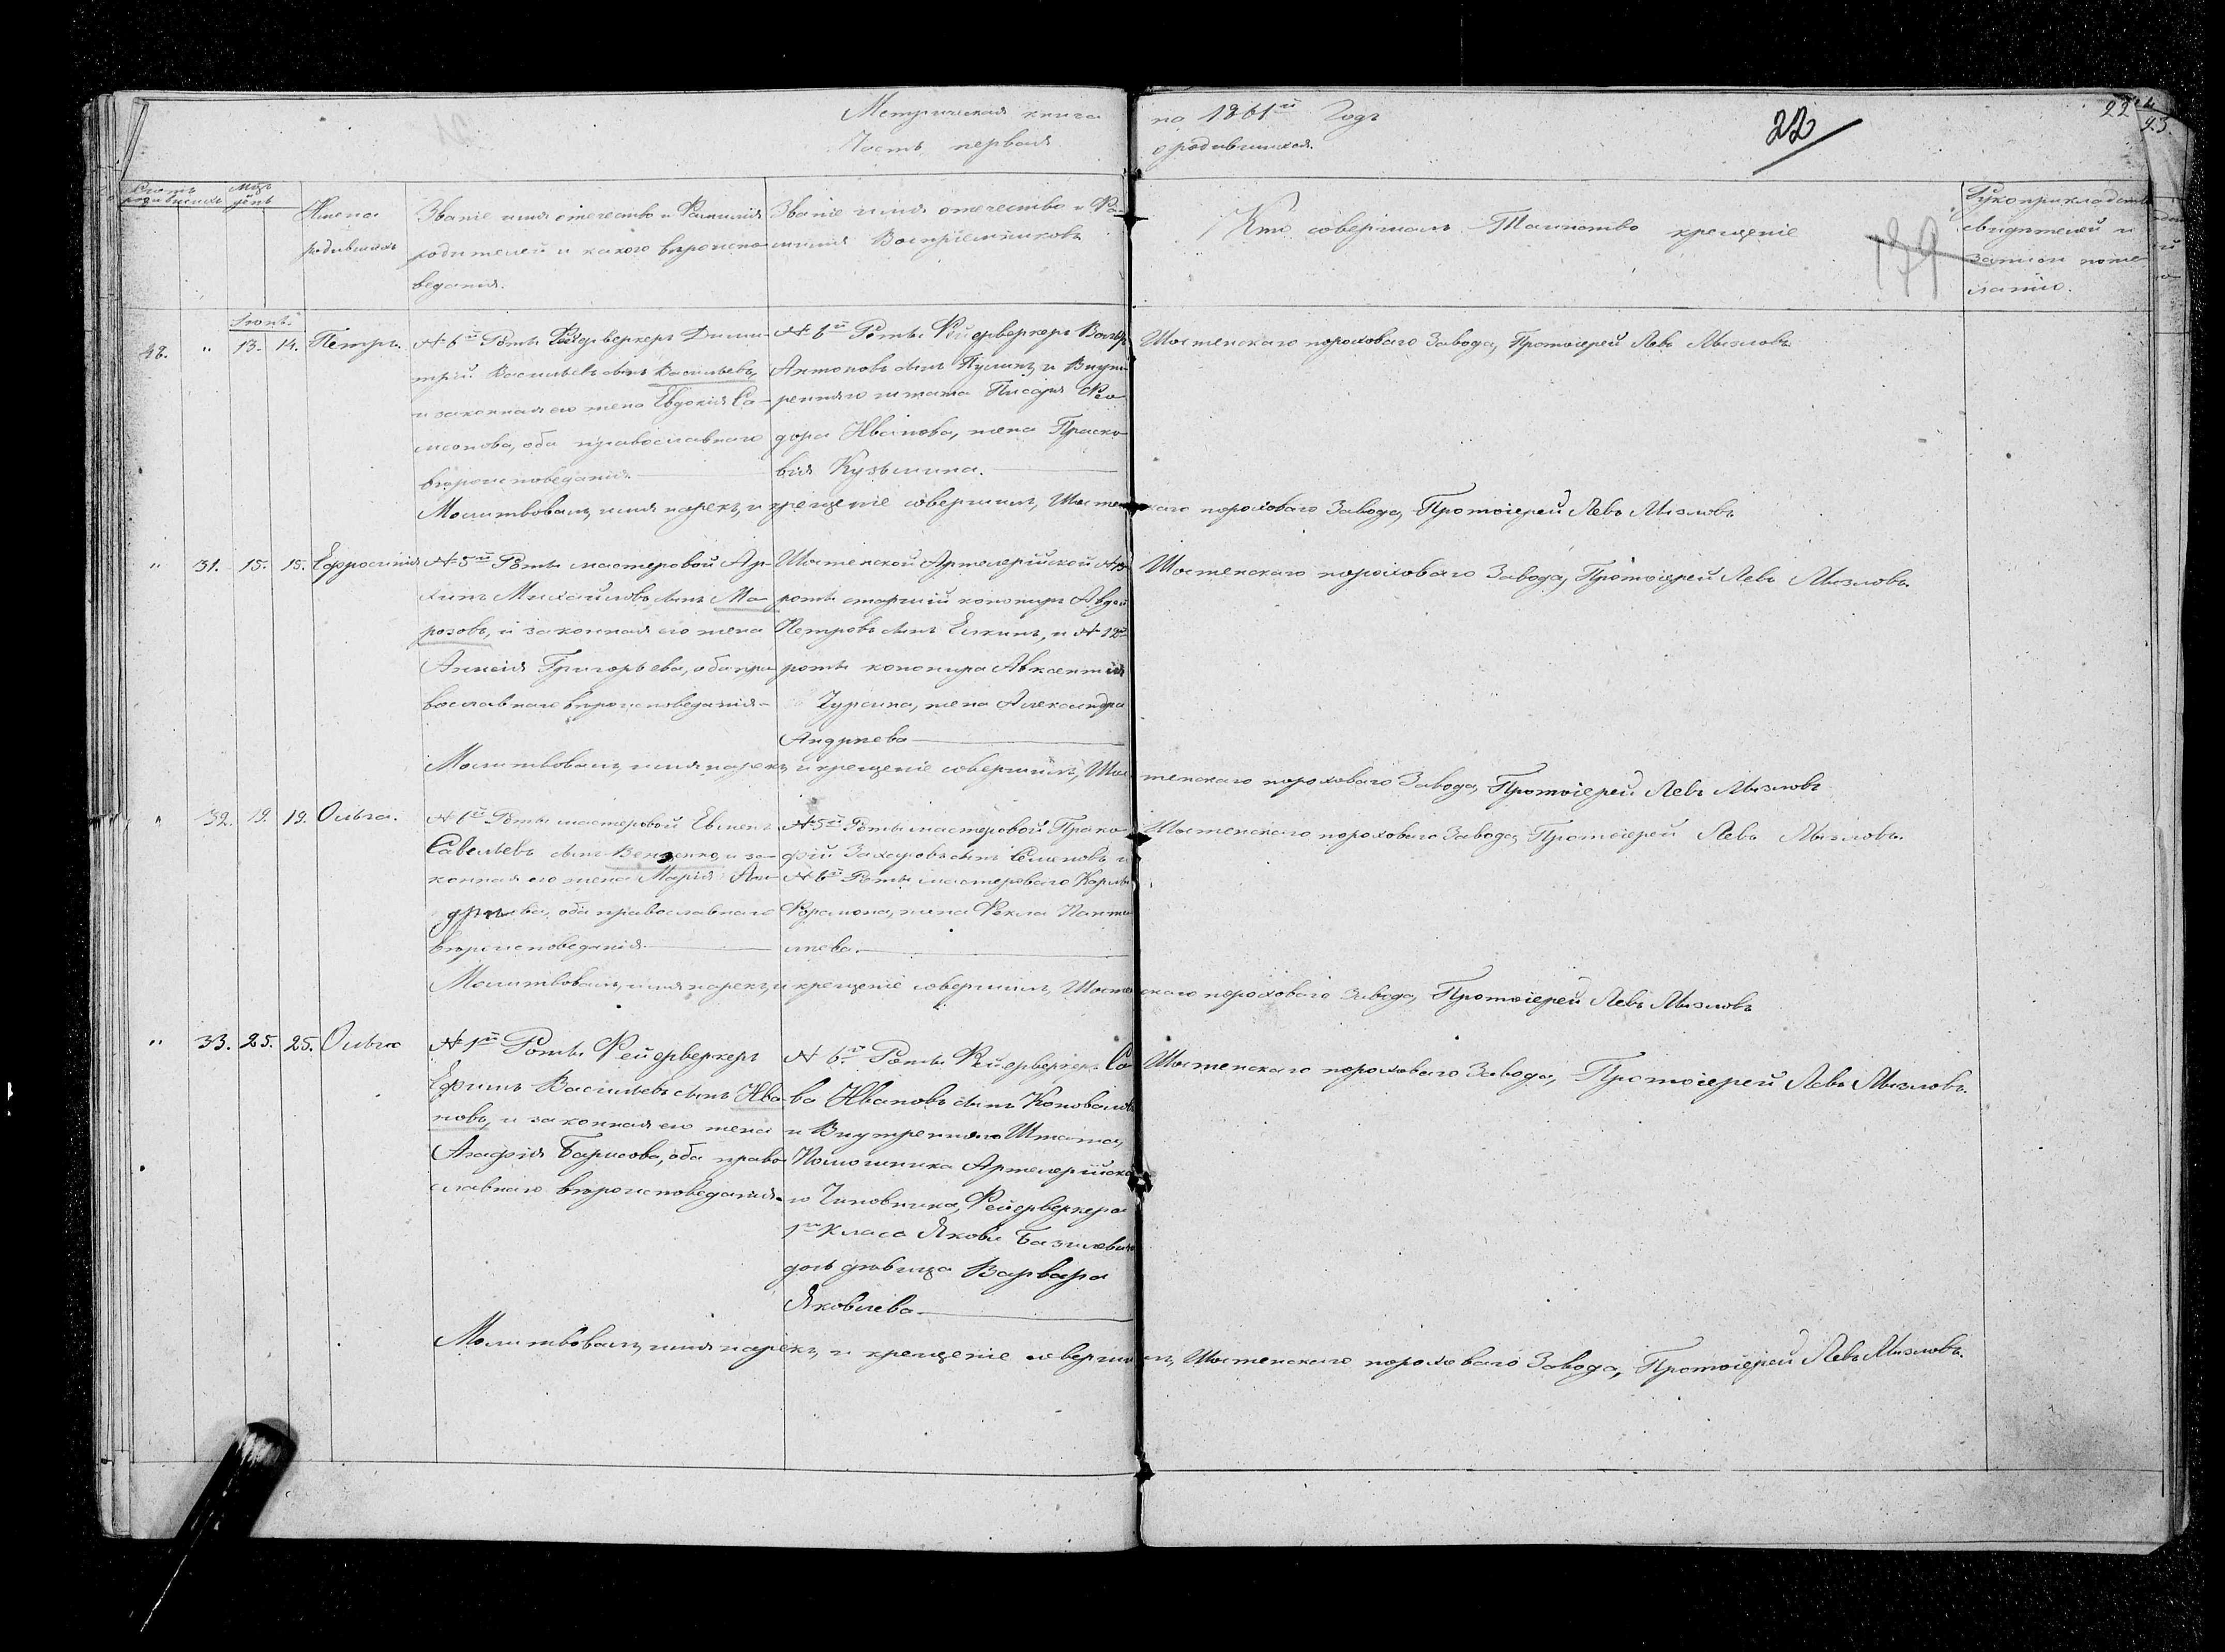 Метрическая книга на 1861й Годъ
Часть первая о родившихся.
22
22
23.
Счетъ родившихся
Мцъ день
Имена родившихъ
Званіе имя отечество и Фамилія
родителей и какого вѣроиспо-
веданія.
Званіе имя отечество и Фа-
милія Воспріемниковъ
Кто совершалъ Таинство крещеніе
179
Рукоприкладство
свидѣтелей и
записи поже-
ланію.
48. " 13. 14. Петръ.
№ 6й Роты Фейерверкеръ Дими-
трій Васильевъ сынъ Васильевъ,
и законная его жена Евдокія Са-
мсонова, оба православнаго
вѣроисповеданія
№ 6й Роты Фейерверкеръ
Антоновъ сынъ Пулинъ, и Внут-
ренняго штата Писаря Фео-
дора Иванова, жена Праско-
вія Кузьмина.
Шостенскаго пороховаго Завода, Протоіерей Левъ Мызловъ
Молитвовалъ, имя нарекъ, и крещеніе совершилъ, Шостенскаго пороховаго Завода, Протоіерей Левъ Мызловъ
" 31. 15. 15. Ефросинія
№ 5й Роты мастеровой Ар-
хипъ Михайловъ сынъ Мо-
розовъ, и законная его жена
Анисія Григорьева, оба пра-
вославнаго вѣроисповеданія
Шостенской Артилерійской
роты старшій канониръ Авдей
Петровъ сынъ Елкинъ, и № 12й
роты канонира Авксентія
Чурсина, жена Александра
Андреева
Шостенскаго пороховаго Завода, Протоіерей Левъ Мызловъ.
Молитвовалъ, имя нарекъ, и крещеніе совершилъ, Шостенскаго пороховаго Завода, Протоіерей Левъ Мызловъ
" 32. 19. 19. Ольга.
№ 6й Роты мастеровой Евмень
Савельевъ сынъ и за-
конная его жена Марія Ан-
дреева, оба православнаго
вѣроисповеданія
№ 5й Роты мастеровой Проко-
фій Захаровъ сынъ Семеновъ и
№ 6й Роты мастероваго Карпа
жена Фекла Панте-
леева.
Шостенскаго пороховаго Завода, Протоіерей Левъ Мызловъ.
Молитвовалъ, имя нарекъ, и крещеніе совершилъ, Шостенскаго пороховаго Завода, Протоіерей Левъ Мызловъ
" 33. 25. 25. Ольга
№ 1й Роты Фейерверкеръ
Ефимъ Васильевъ сынъ Ива-
новъ, и законная его жена
Агафія Барисова, оба право-
славнаго вѣроисповеданія.
№ 6й Роты Фейерверкеръ Са-
ва Ивановъ сынъ Коноваловъ
и Внутренняго Штата,
Помошника Артилерійска-
го Чиновника, Фейерверкера
1го класа Якова Базилевича
дочь дѣвица Варвара
Яковлева
Шостенскаго пороховаго Завода, Протоіерей Левъ Мызловъ.
Молитвовалъ, имя нарекъ, и крещеніе совершилъ, Шостенскаго пороховаго Завода, Протоіерей Левъ Мызловъ.